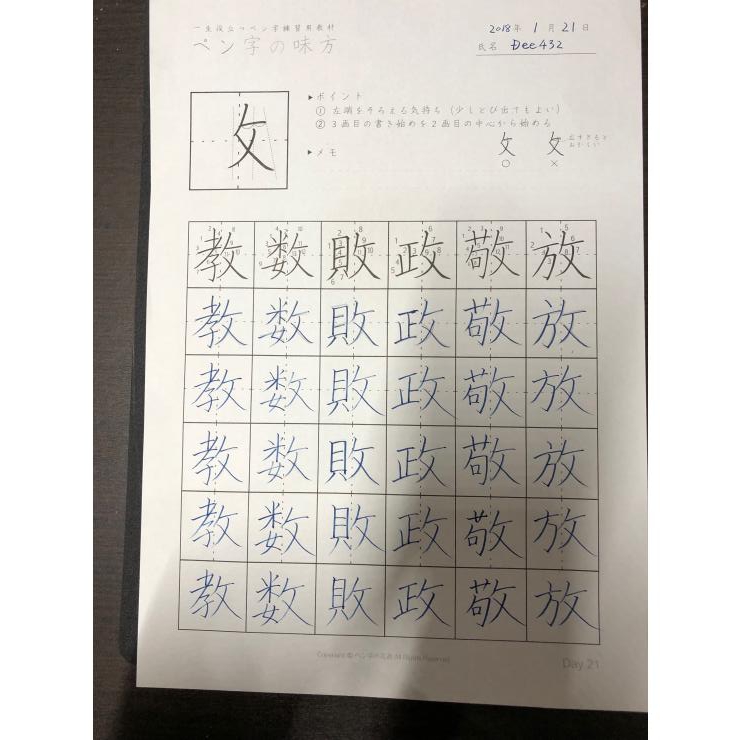 一生役立つペン字練習用教材
ペン字の味方
2018年 1月 21日
氏名 Dec432
攵
▶ポイント
① 左端をそろえる気持ち（少しとび出てもよい）
② 3画目の書き始めを2画目の中心から始める
▶メモ
攵 攵
○ ×
教 数 敗 政 敬 放
教 数 敗 政 敬 放
教 数 敗 政 敬 放
教 数 敗 政 敬 放
教 数 敗 政 敬 放
教 数 敗 政 敬 放
Copyright © ペン字の味方 All Rights Reserved.
Day.21